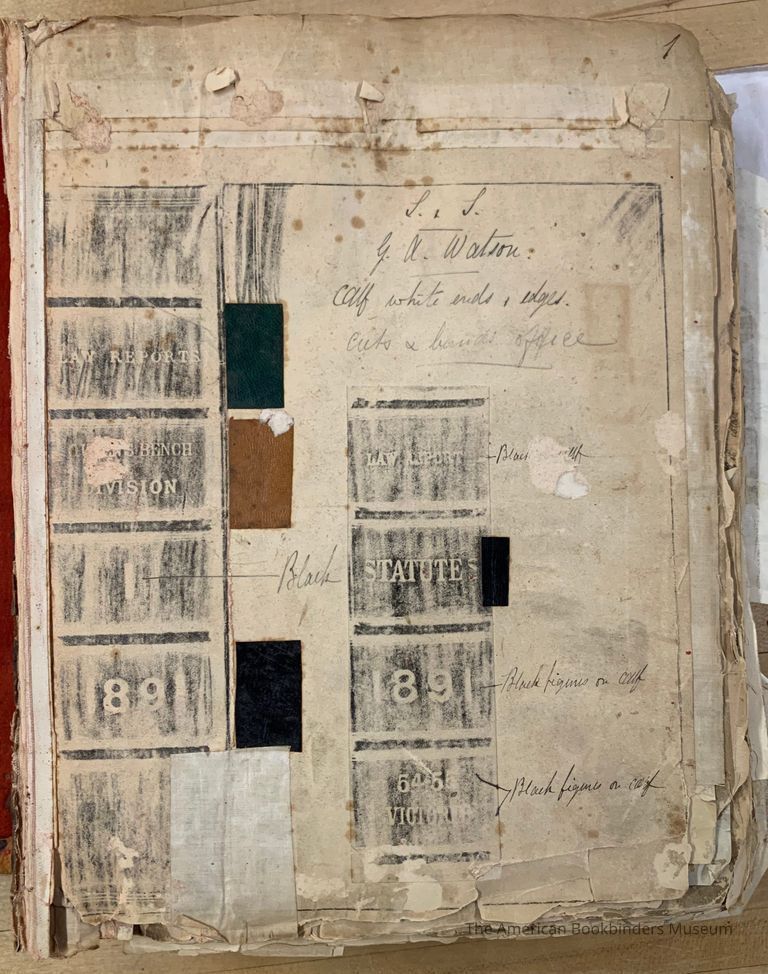 1
S. & S.
G. A. Watson.
Calf white ends & edges.
cuts & bands office
LAW REPORTS
BENCH
DIVISION
Black
1891
LAW REPORTS
STATUTES
1891
Black figures on calf
VICTORIA
Black figures on calf
The American Bookbinders Museum